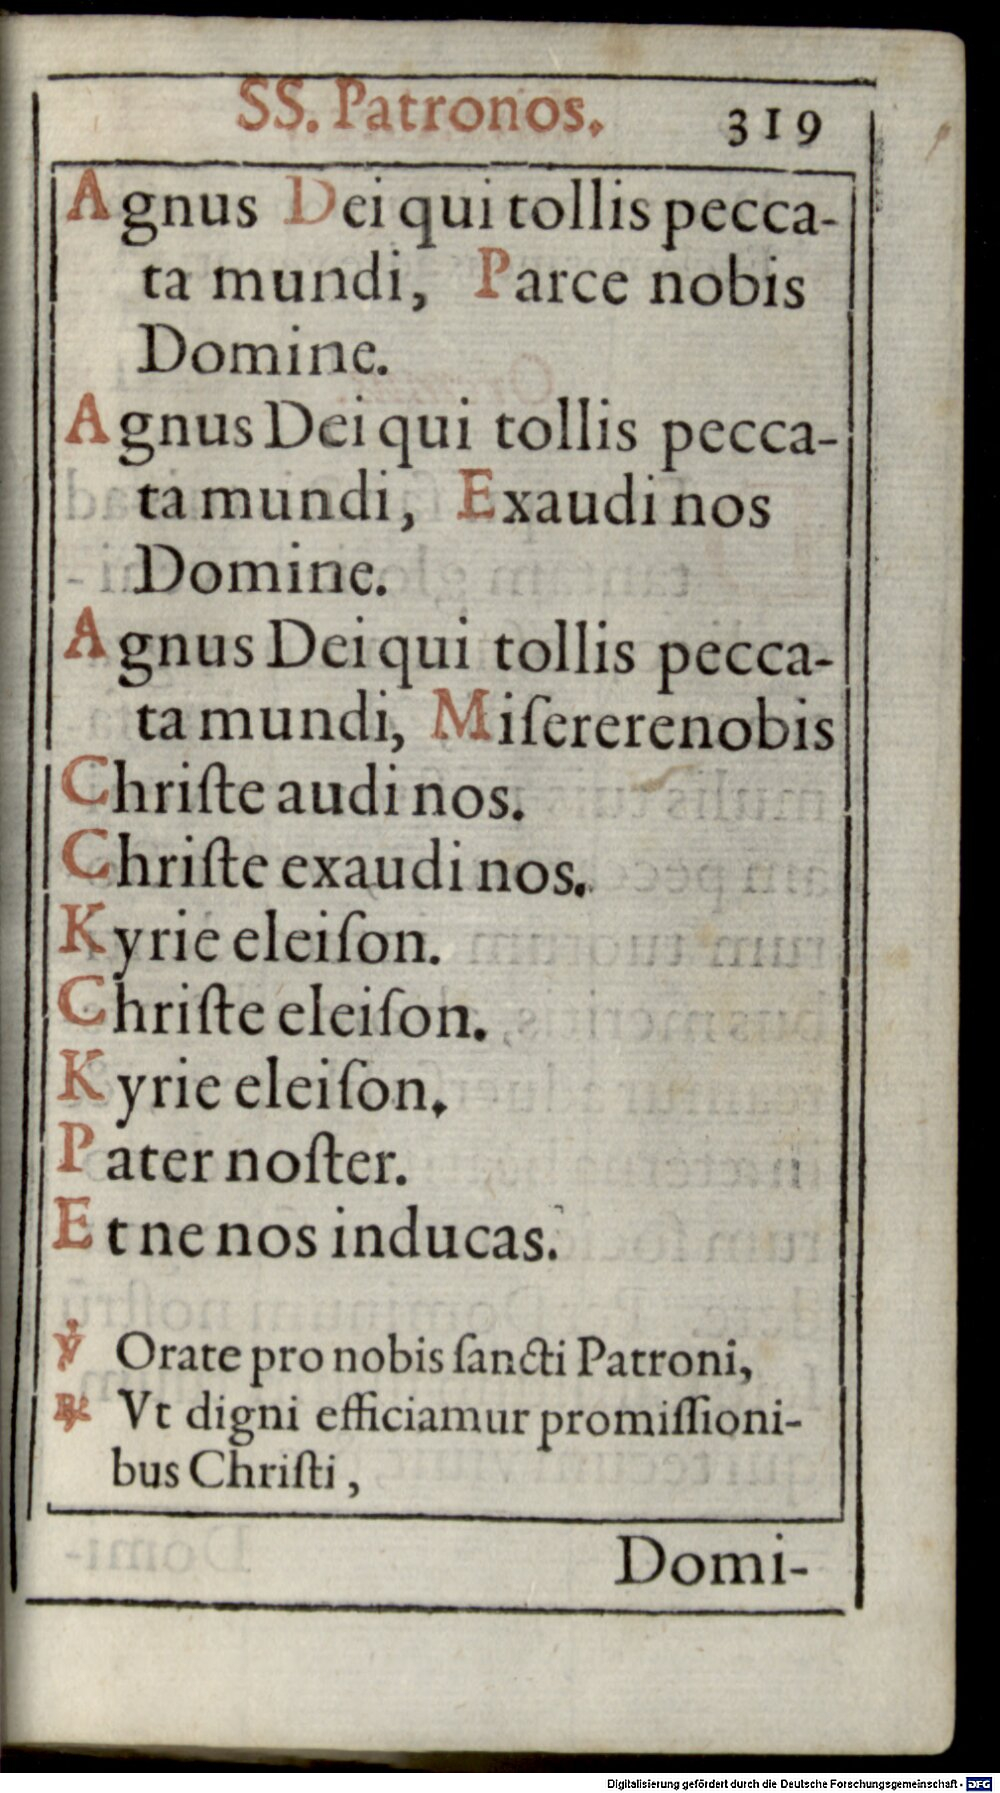 SS. Patronos. 319
Agnus Dei qui tollis pecca-
ta mundi, Parce nobis
Domine.
Agnus Dei qui tollis pecca-
ta mundi, Exaudi nos
Domine.
Agnus Dei qui tollis pecca-
ta mundi, Miſererenobis
Chriſte audi nos.
Chriſte exaudi nos.
Kyrie eleiſon.
Chriſte eleiſon.
Kyrie eleiſon.
Pater noſter.
Et ne nos inducas.
℣ Orate pro nobis ſancti Patroni,
℟ Vt digni efficiamur promiſſioni-
bus Chriſti,
Domi-
Digitalisierung gefördert durch die Deutsche Forschungsgemeinschaft - DFG